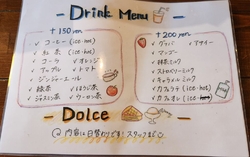 Drink Menu
+150yen
✓コーヒー(ice・hot)
✓紅茶(ice・hot)
✓コーラ ✓オレンジ
✓アップル ✓トマト
✓ジンジャーエール
✓緑茶 ✓ほうじ茶
✓ジャスミン茶 ✓ウーロン茶
+200yen
✓グァバ ✓アサイー
✓マンゴー
✓抹茶ミルク
✓ストロベリーミルク
✓キャラメルミルク
✓カフェラテ(ice・hot)
✓カフェオレ(ice
Dolce
内容は日替わりです!スタッフまで